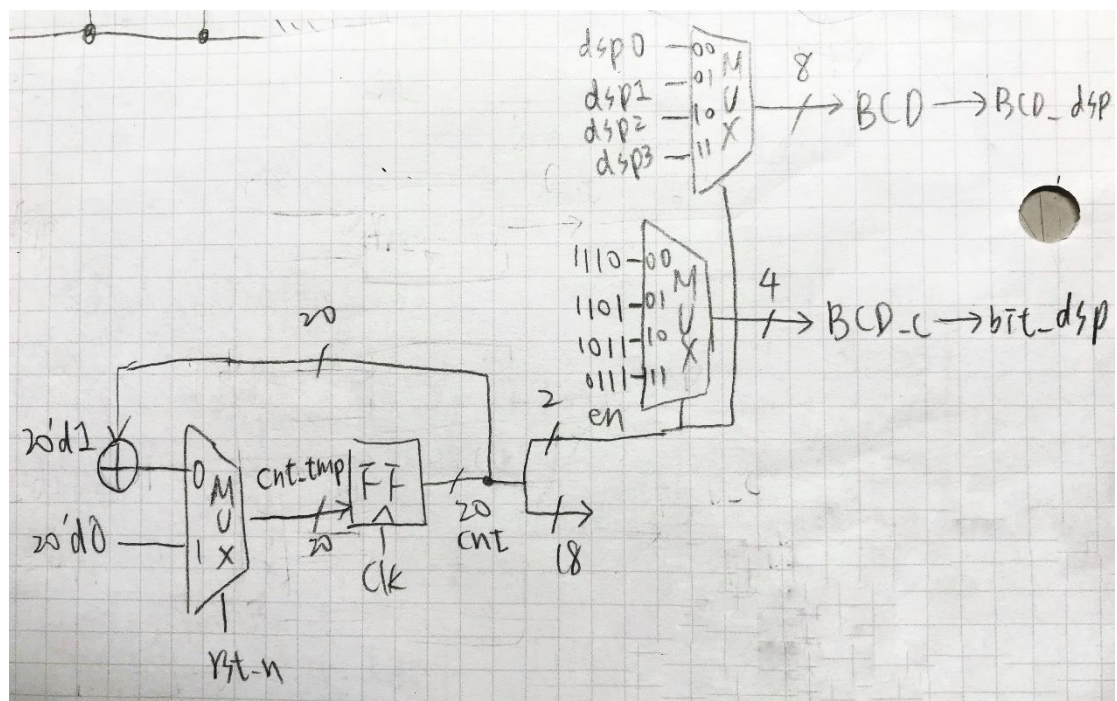 dsp0
00
dsp1
01
dsp2
10
dsp3
11
MUX
8
BCD
BCD_dsp
1110
00
1101
01
1011
10
0111
11
MUX
en
4
BCD_c
bit_dsp
20
2
20'd1
0
20'd0
1
MUX
cnt_tmp
20
FF
clk
20
cnt
18
rst_n